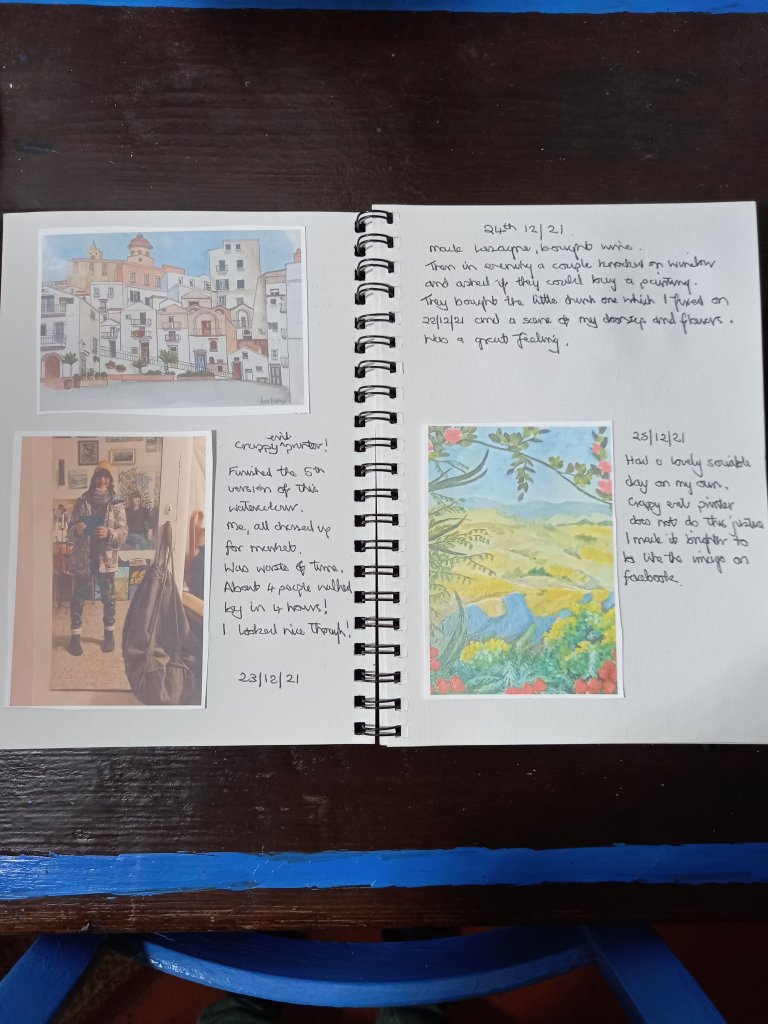 evil
Crappy printer!
Finished the 5th
version of this
watercolour.
Me, all dressed up
for market.
Was waste of time.
About 4 people walked
by in 4 hours!
I looked nice though!
23/12/21
24th 12/21.
Made lasagne, bought wine.
Then in evening a couple knocked on window
and asked if they could buy a painting.
They bought the little one which I fixed on
22/12/21 and a scene of my doorstep and flowers.
Was a great feeling.
25/12/21
Had a lovely sociable
day on my own.
Crappy evil printer
does not do this justice
I made it brighter to
be like the image on
facebook.